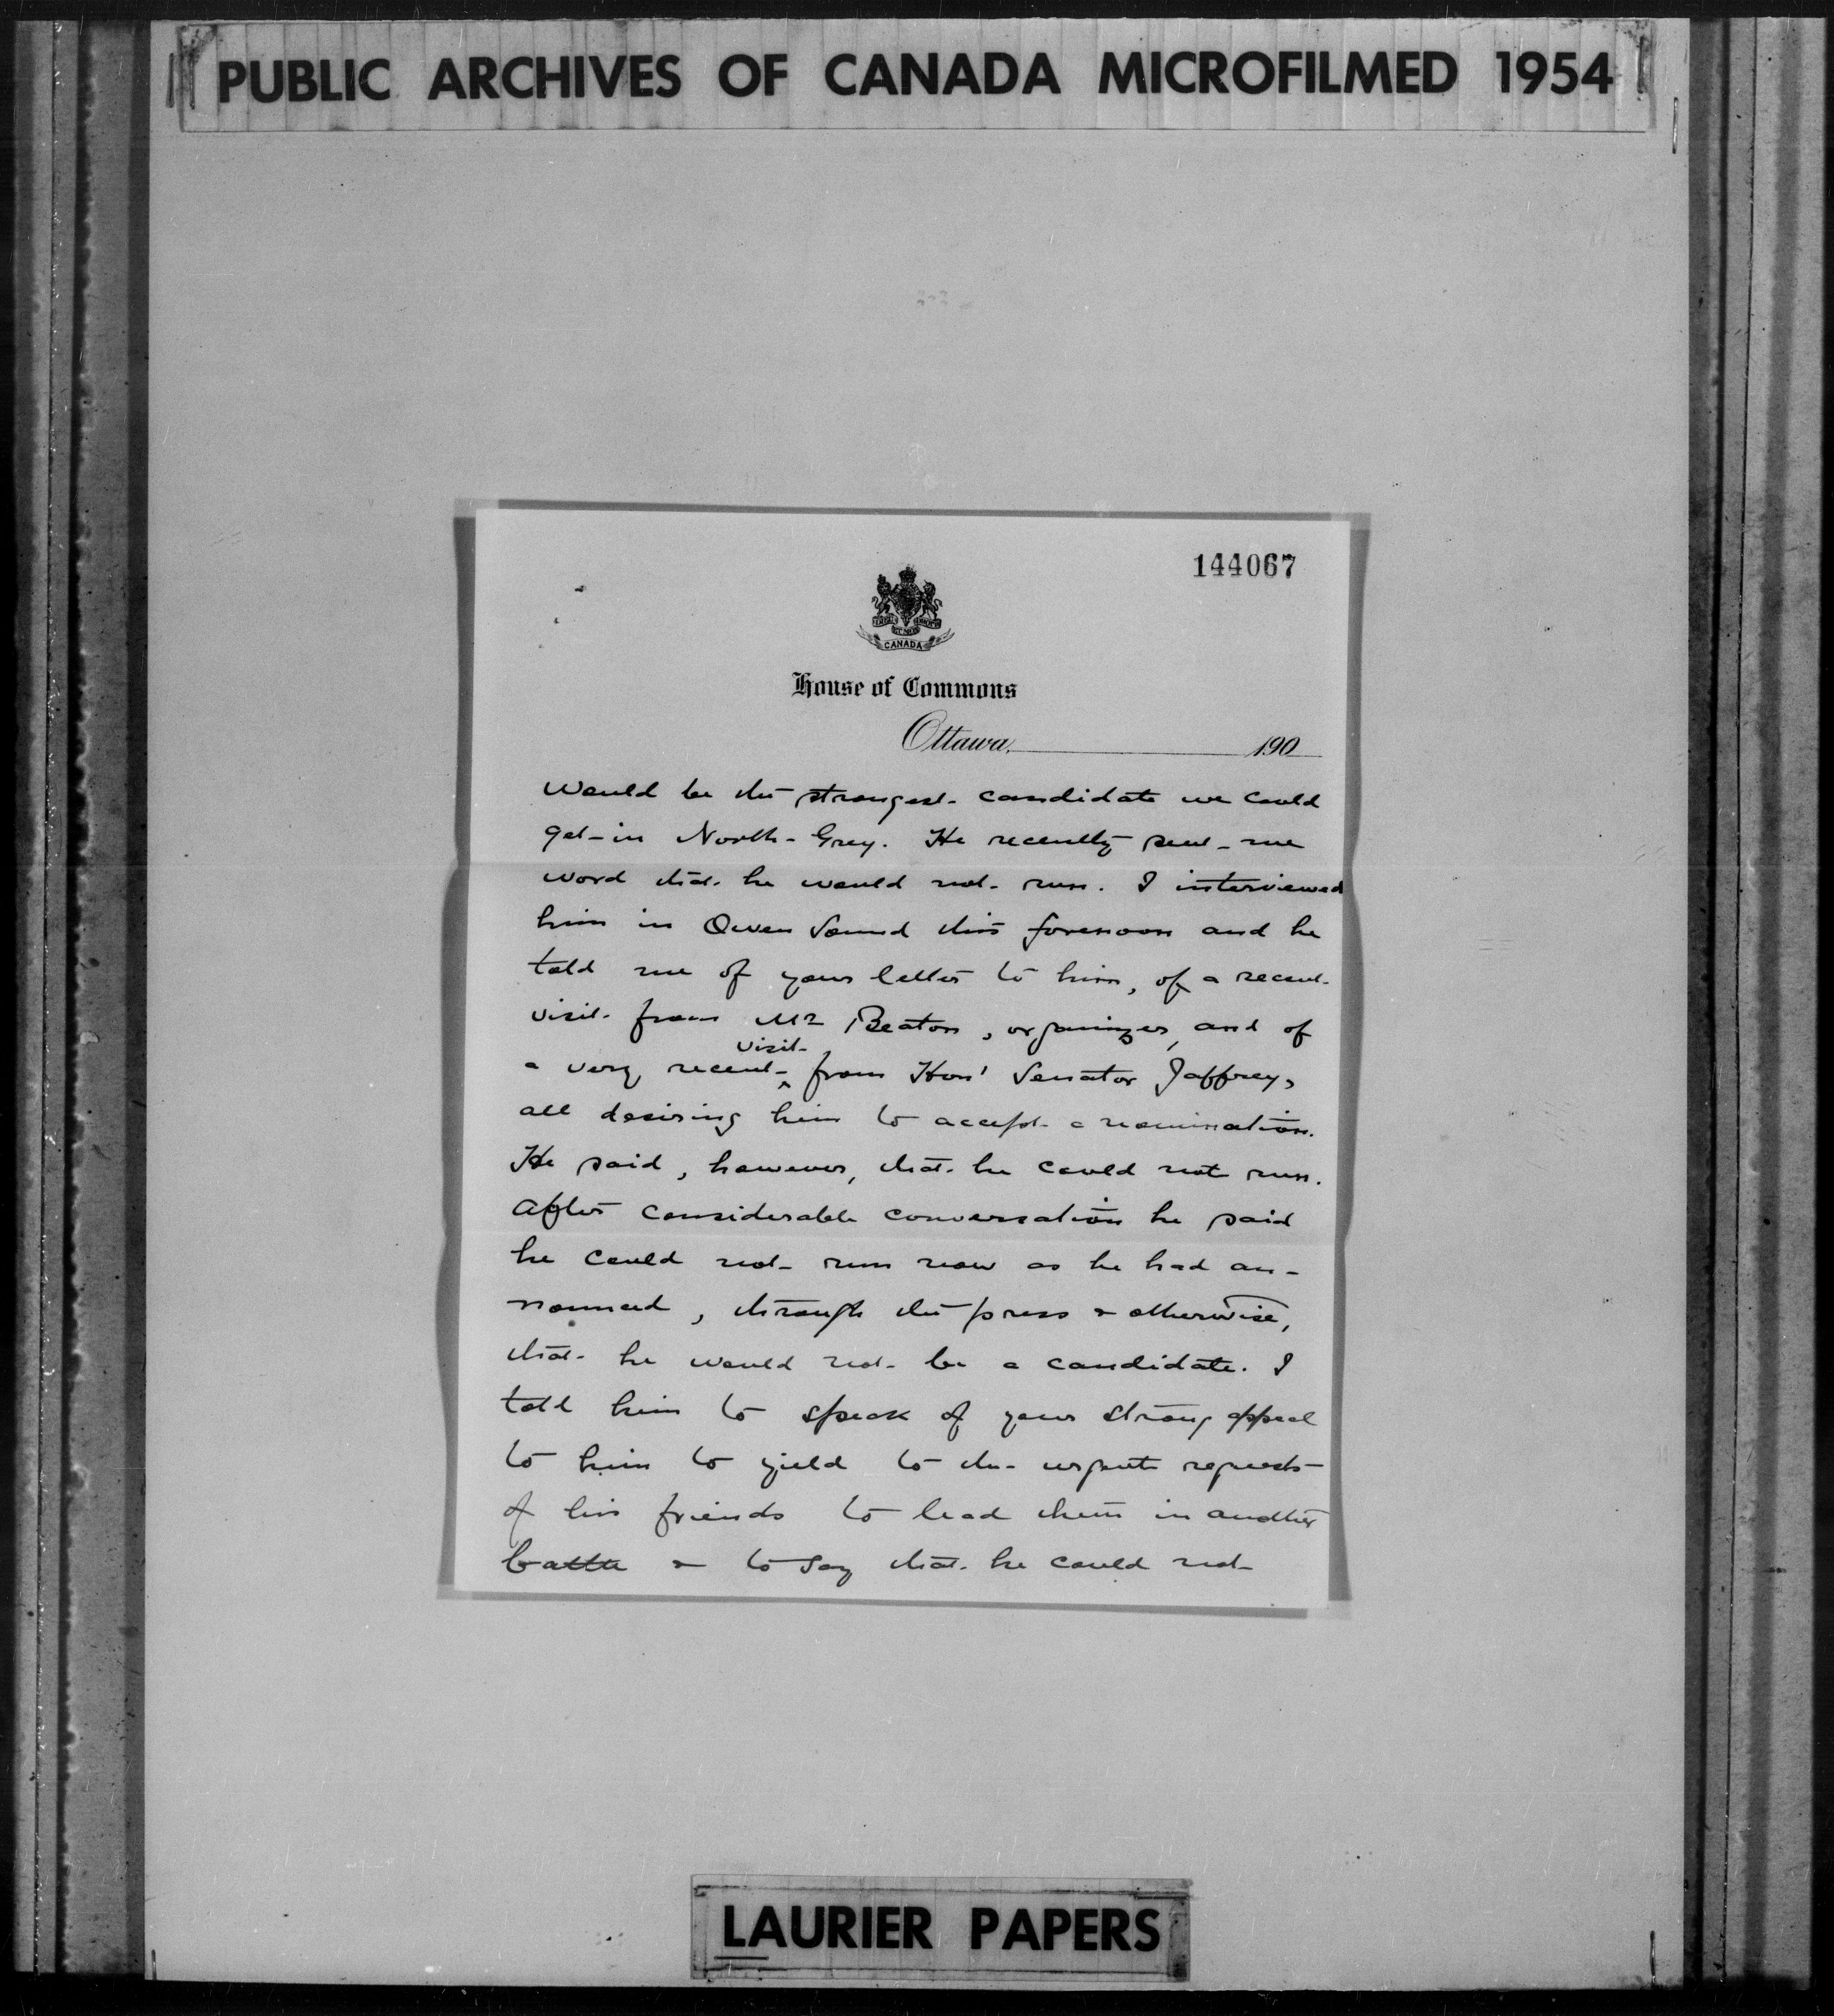 PUBLIC ARCHIVES OF CANADA MICROFILMED 1954
144067
CANADA
House of Commons
Ottawa, 190
would be the strongest candidate we could
get in North-Grey. He recently sent me
word that he would not run. I interviewed
him in Owen Sound this forenoon and he
told me of your letter to him, of a recent
visit from Mr Beaton, organizer, and of
visit
a very recent ^ from Hon' Senator Jaffrey,
all desiring him to accept a nomination.
He said, however, that he could not run.
After considerable conversation he said
he could not run now as he had an-
nounced, through the press & otherwise,
that he would not be a candidate. I
told him to speak of your strong appeal
to him to yield to the urgent requests
of his friends to lead them in another
battle & to say that he could not
LAURIER PAPERS